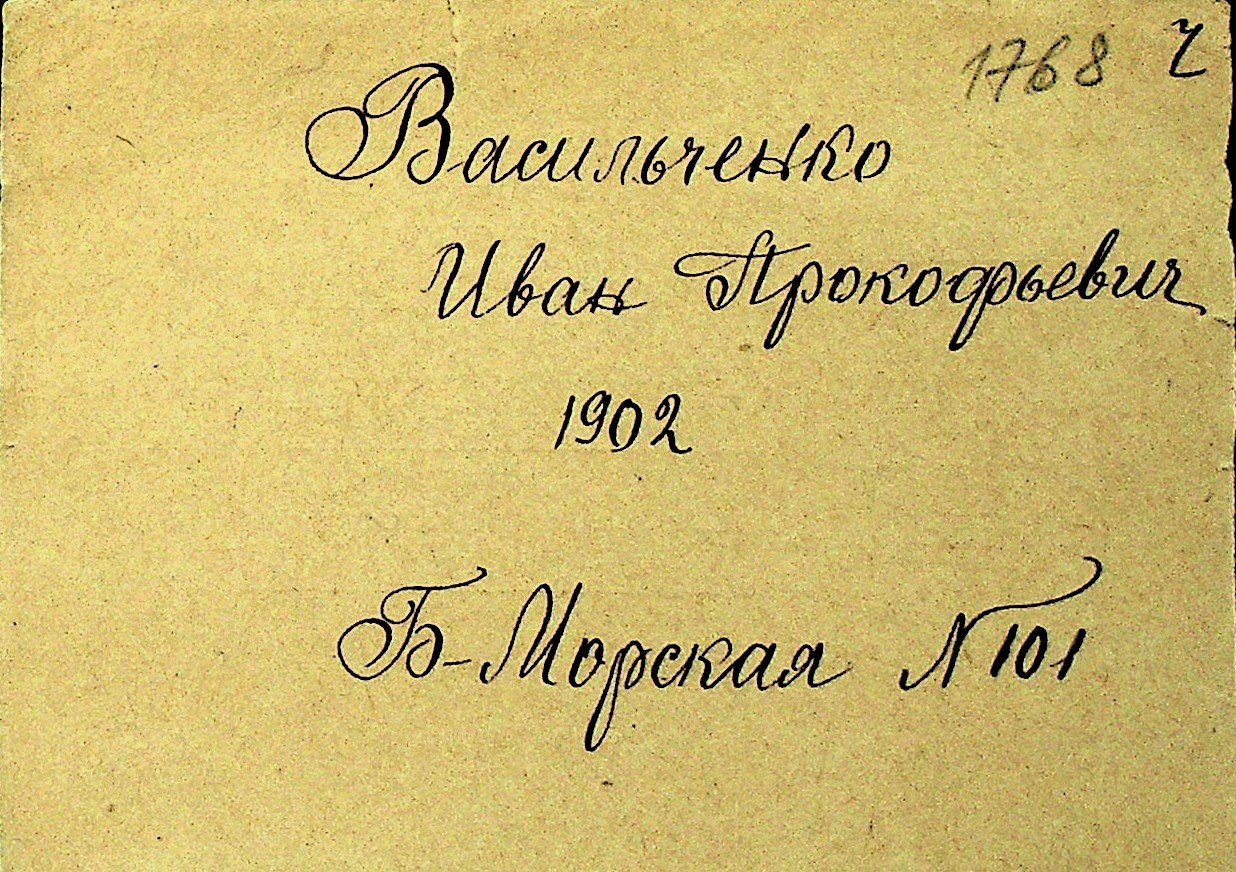 1768 ч
Васильченко
Иван Прокофьевич
1902
Б-Морская N 101